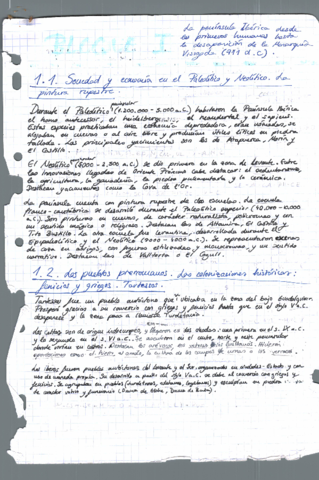 La península Ibérica desde
los primeros humanos hasta
la desaparición de la Monarquía
Visigoda (711 d.C.)
1.1. Sociedad y economía en el Paleolítico y Neolítico. La
pintura rupestre.
Durante el Paleolítico (1.200.000 - 5.000 a.C.) habitaron la Península Ibérica
el homo antecessor, el heidelbergensis, el neandertal y el sapiens.
Estas especies practicaban una economía depredadora, eran nómadas, se
alojaban en cuevas o al aire libre y producían útiles líticos en piedra
tallada. Los principales yacimientos son los de Atapuerca, Morín y
El Castillo.
El Neolítico (5000 - 2.500 a.C.) se dio primero en la zona de Levante. Entre
las innovaciones llegadas de Oriente Próximo cabe destacar: el sedentarismo,
la agricultura, la ganadería, la piedra pulimentada y la cerámica.
Destacan yacimientos como la Cova de l'Or.
La península cuenta con pintura rupestre de dos escuelas. La escuela
franco-cantábrica se desarrolló durante el Paleolítico superior (40.000 - 10.000
a.C.). Son pinturas en cuevas, de carácter naturalista, polícromas y con
un sentido mágico o religioso. Destacan las de Altamira, El Castillo y
Tito Bustillo. La otra escuela fue levantina, desarrollada durante el
Epipaleolítico y el Neolítico (7000 - 4000 a.C.). Se representaron escenas
de caza en abrigos, con figuras estilizadas y monocromas, y un sentido
narrativo. Destacan las de Valltorta o El Cogull.
1.2. Los pueblos prerromanos. Las colonizaciones históricas:
fenicios y griegos. Tartessos.
Tartessos fue un pueblo autóctono que habitaba en la zona del bajo Guadalquivir.
Prosperó gracias a su comercio con griegos y fenicios hasta que en el siglo V a.C.
desapareció y la zona pasó a llamarse Turdetania.
Los celtas, son de origen indoeuropeo, y llegaron en dos oleadas: una primera en el s. IX a.C.
y la segunda en el s. VI a.C. Se asentaron en el centro, norte y oeste peninsular
donde vivían en castros.
Los íberos fueron pueblos autóctonos del levante y el sur, organizados en ciudades-Estado y con
uso de moneda propia. Su desarrollo a partir del siglo V a.C. se debe al comercio con griegos y
fenicios. Se agrupaban en pueblos (turdetanos, edetanos, layetanos) y esculpían en piedra
de carácter votivo y funerario (Dama de Elche, Dama de Baza).